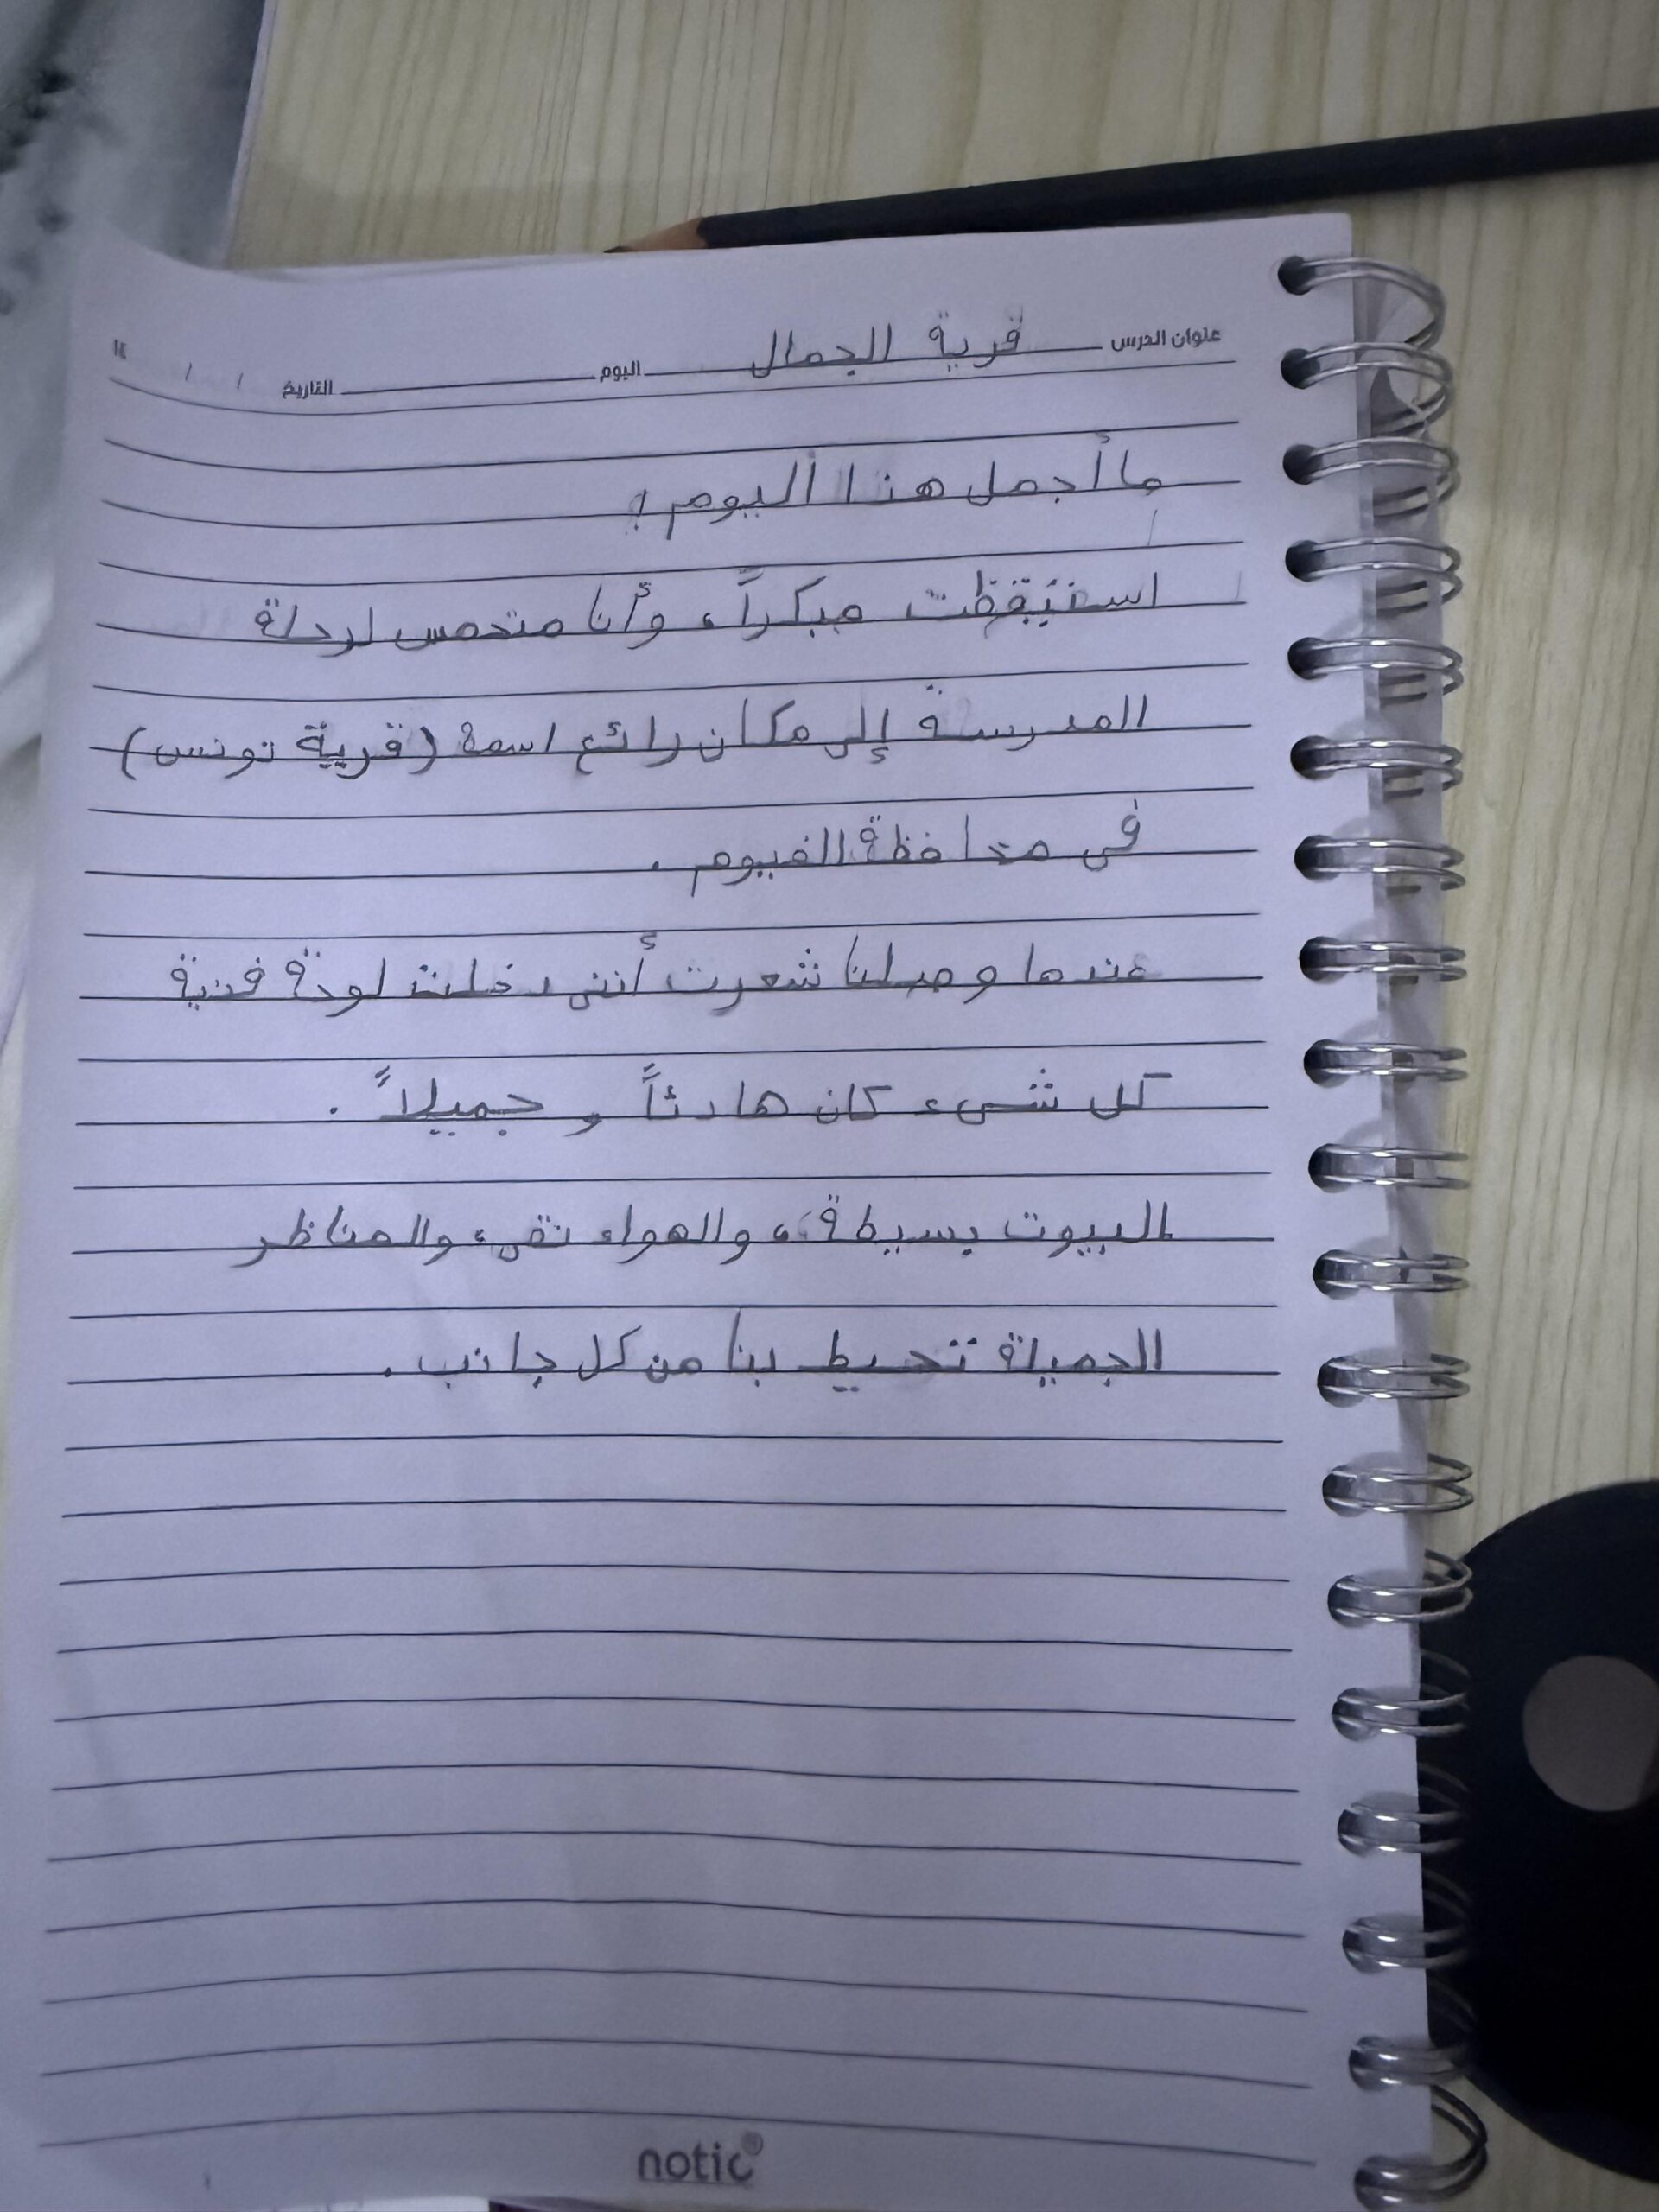 عنوان الدرس قرية الجمال اليوم التاريخ / / ١٤
ما أجمل هذا اليوم!
استيقظت مبكراً، وأنا متحمس لرحلة
المدرسة إلى مكان رائع اسمة (قرية تونس)
فى محافظة الفيوم.
عندما وصلنا شعرت أننى دخلت لوحة فنية
كل شىء كان هادئاً و جميلاً.
البيوت بسيطة، والهواء نقى، والمناظر
الجميلة تحيط بنا من كل جانب.
notic